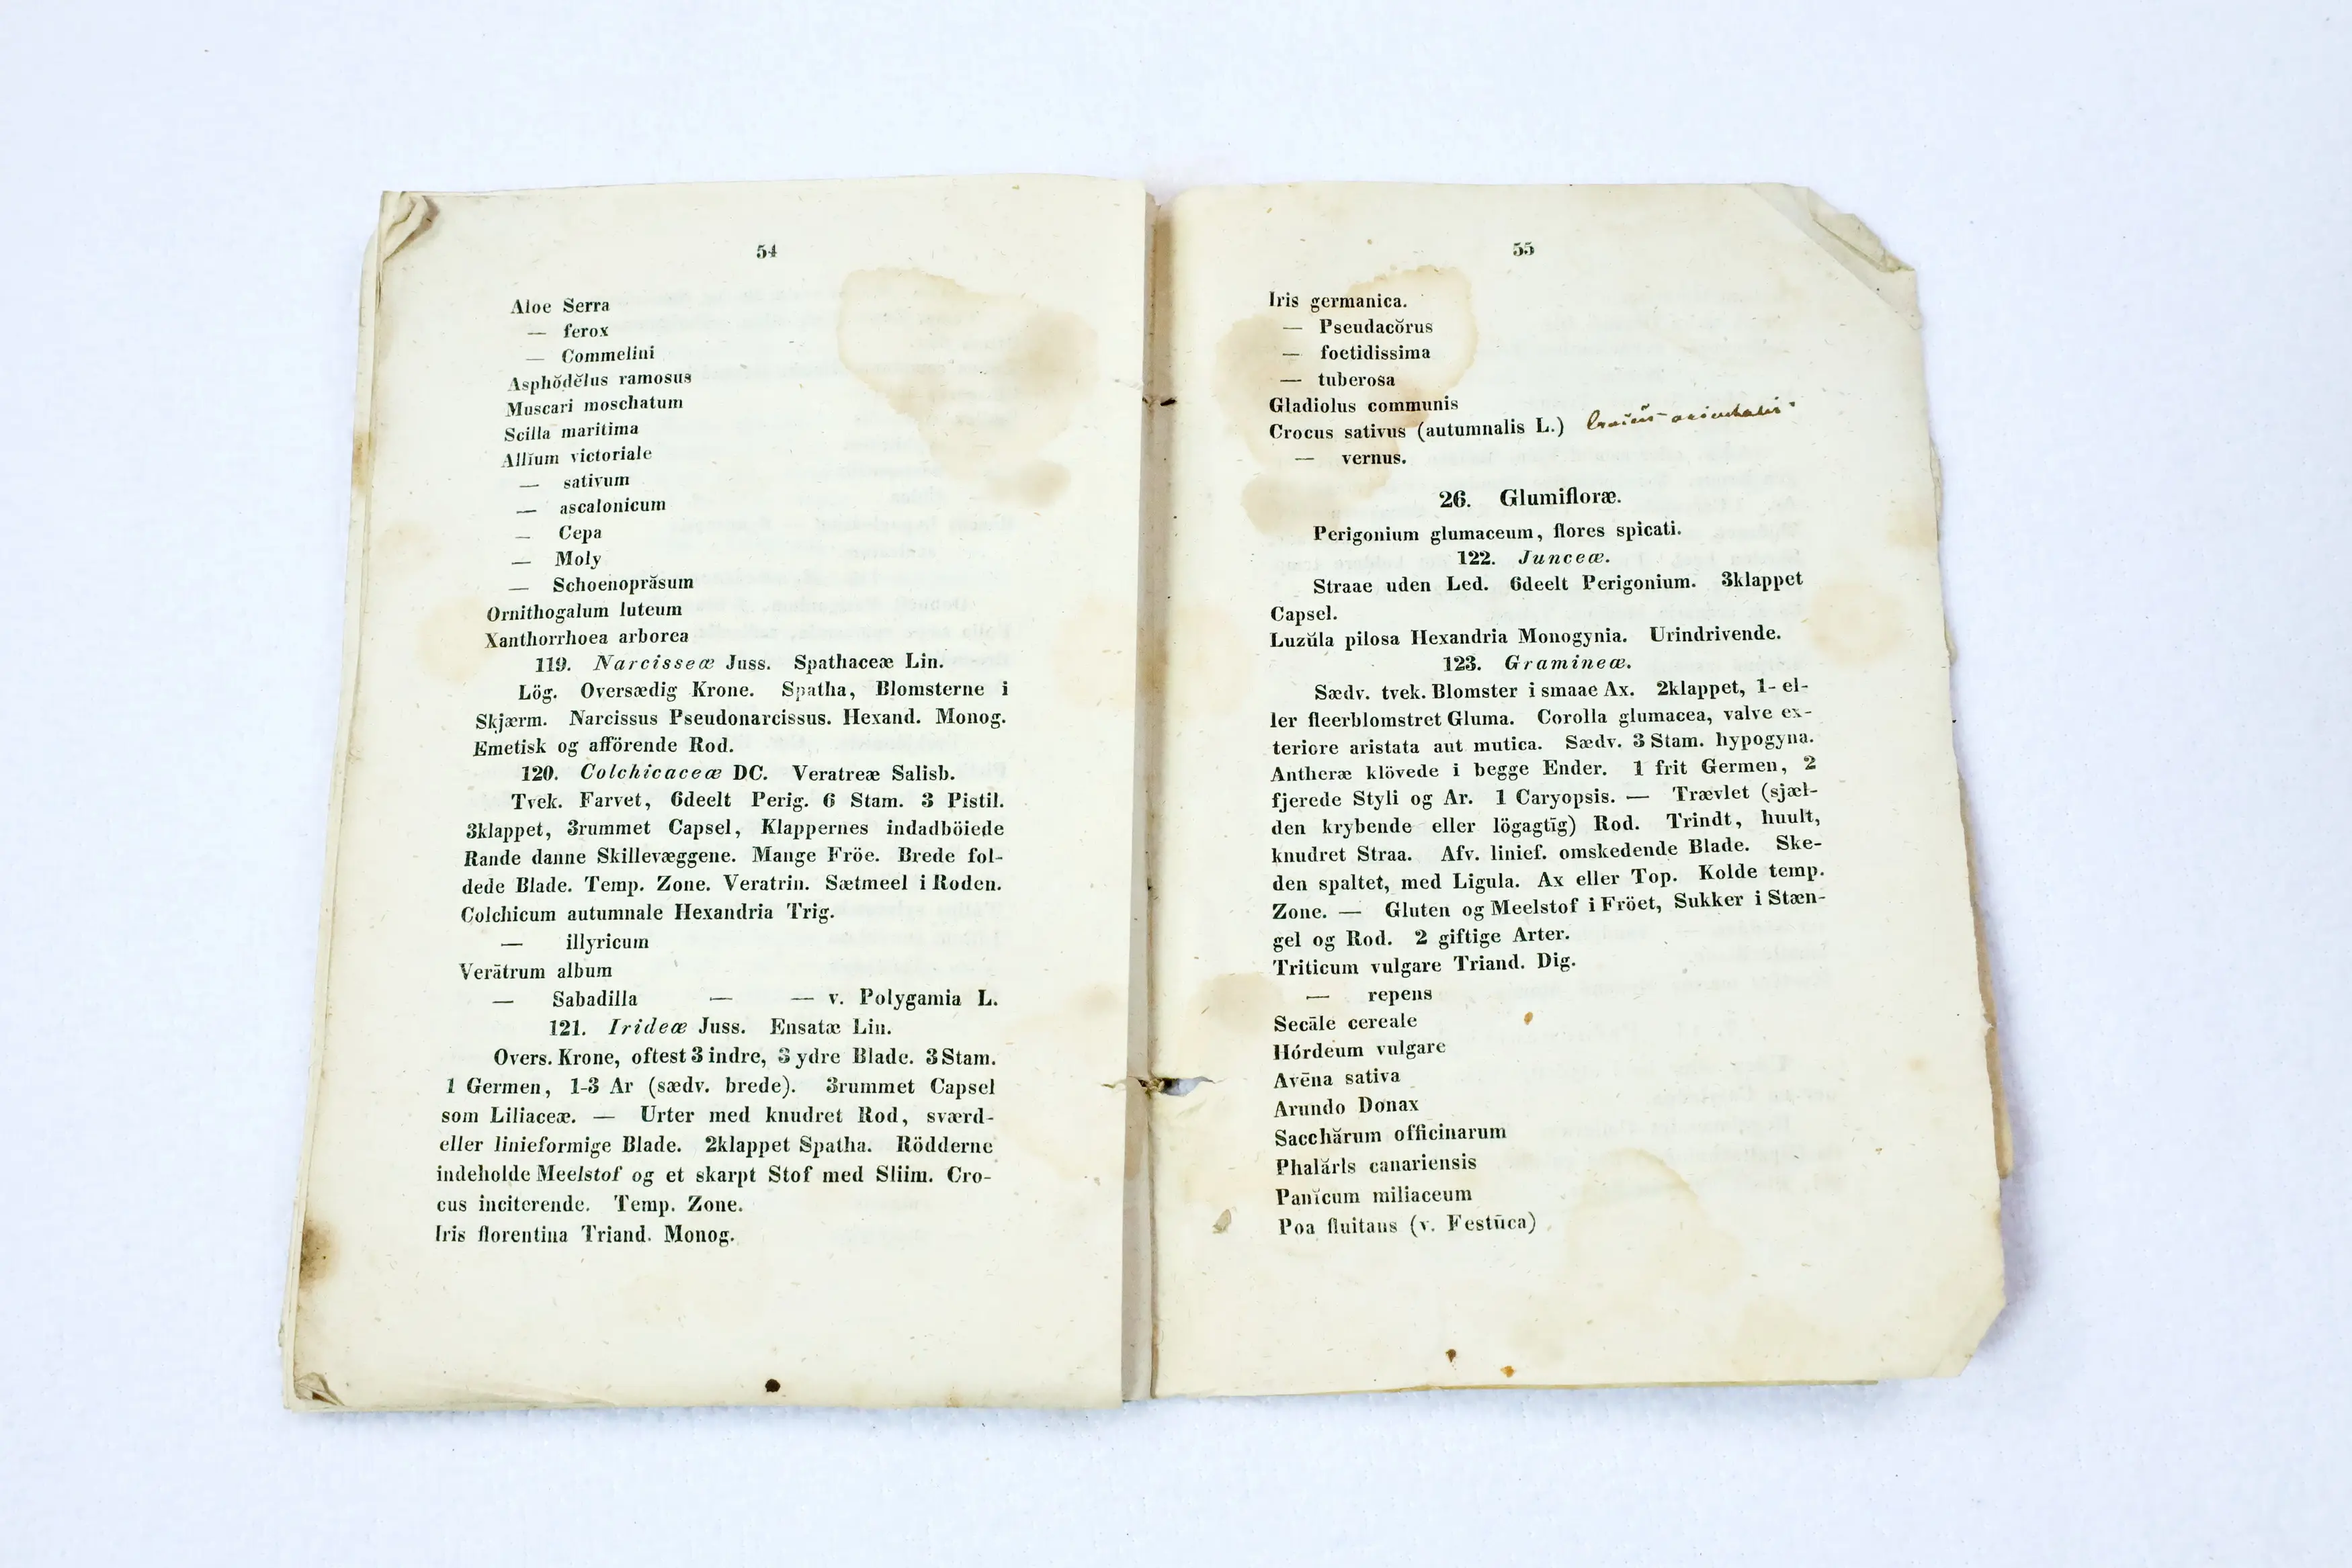 54
Aloe Serra
— ferox
— Commelini
Asphŏdĕlus ramosus
Muscari moschatum
Scilla maritima
Allĭum victoriale
— sativum
— ascalonicum
— Cepa
— Moly
— Schoenoprăsum
Ornithogalum luteum
Xanthorrhoea arborea
119. Narcisseæ Juss. Spathaceæ Lin.
Lög. Oversædig Krone. Spatha, Blomsterne i
Skjærm. Narcissus Pseudonarcissus. Hexand. Monog.
Emetisk og afförende Rod.
120. Colchicaceæ DC. Veratreæ Salisb.
Tvek. Farvet, 6deelt Perig. 6 Stam. 3 Pistil.
3klappet, 3rummet Capsel, Klappernes indadböiede
Rande danne Skillevæggene. Mange Fröe. Brede fol-
dede Blade. Temp. Zone. Veratrin. Sætmeel i Roden.
Colchicum autumnale Hexandria Trig.
— illyricum
Verātrum album
— Sabadilla — — v. Polygamia L.
121. Irideæ Juss. Ensatæ Lin.
Overs. Krone, oftest 3 indre, 3 ydre Blade. 3 Stam.
1 Germen, 1-3 Ar (sædv. brede). 3rummet Capsel
som Liliaceæ. — Urter med knudret Rod, sværd-
eller linieformige Blade. 2klappet Spatha. Rödderne
indeholde Meelstof og et skarpt Stof med Sliim. Cro-
cus inciterende. Temp. Zone.
Iris florentina Triand. Monog.
55
Iris germanica.
— Pseudacŏrus
— foetidissima
— tuberosa
Gladiolus communis
Crocus sativus (autumnalis L.) orientalis
— vernus.
26. Glumifloræ.
Perigonium glumaceum, flores spicati.
122. Junceæ.
Straae uden Led. 6deelt Perigonium. 3klappet
Capsel.
Luzŭla pilosa Hexandria Monogynia. Urindrivende.
123. Gramineæ.
Sædv. tvek. Blomster i smaae Ax. 2klappet, 1- el-
ler fleerblomstret Gluma. Corolla glumacea, valve ex-
teriore aristata aut mutica. Sædv. 3 Stam. hypogyna.
Antheræ klövede i begge Ender. 1 frit Germen, 2
fjerede Styli og Ar. 1 Caryopsis. — Trævlet (sjæl-
den krybende eller lögagtig) Rod. Trindt, huult,
knudret Straa. Afv. linief. omskedende Blade. Ske-
den spaltet, med Ligula. Ax eller Top. Kolde temp.
Zone. — Gluten og Meelstof i Fröet, Sukker i Stæn-
gel og Rod. 2 giftige Arter.
Triticum vulgare Triand. Dig.
— repens
Secāle cereale
Hórdeum vulgare
Avēna sativa
Arundo Donax
Sacchărum officinarum
Phalăris canariensis
Panĭcum miliaceum
Poa fluitans (v. Festūca)